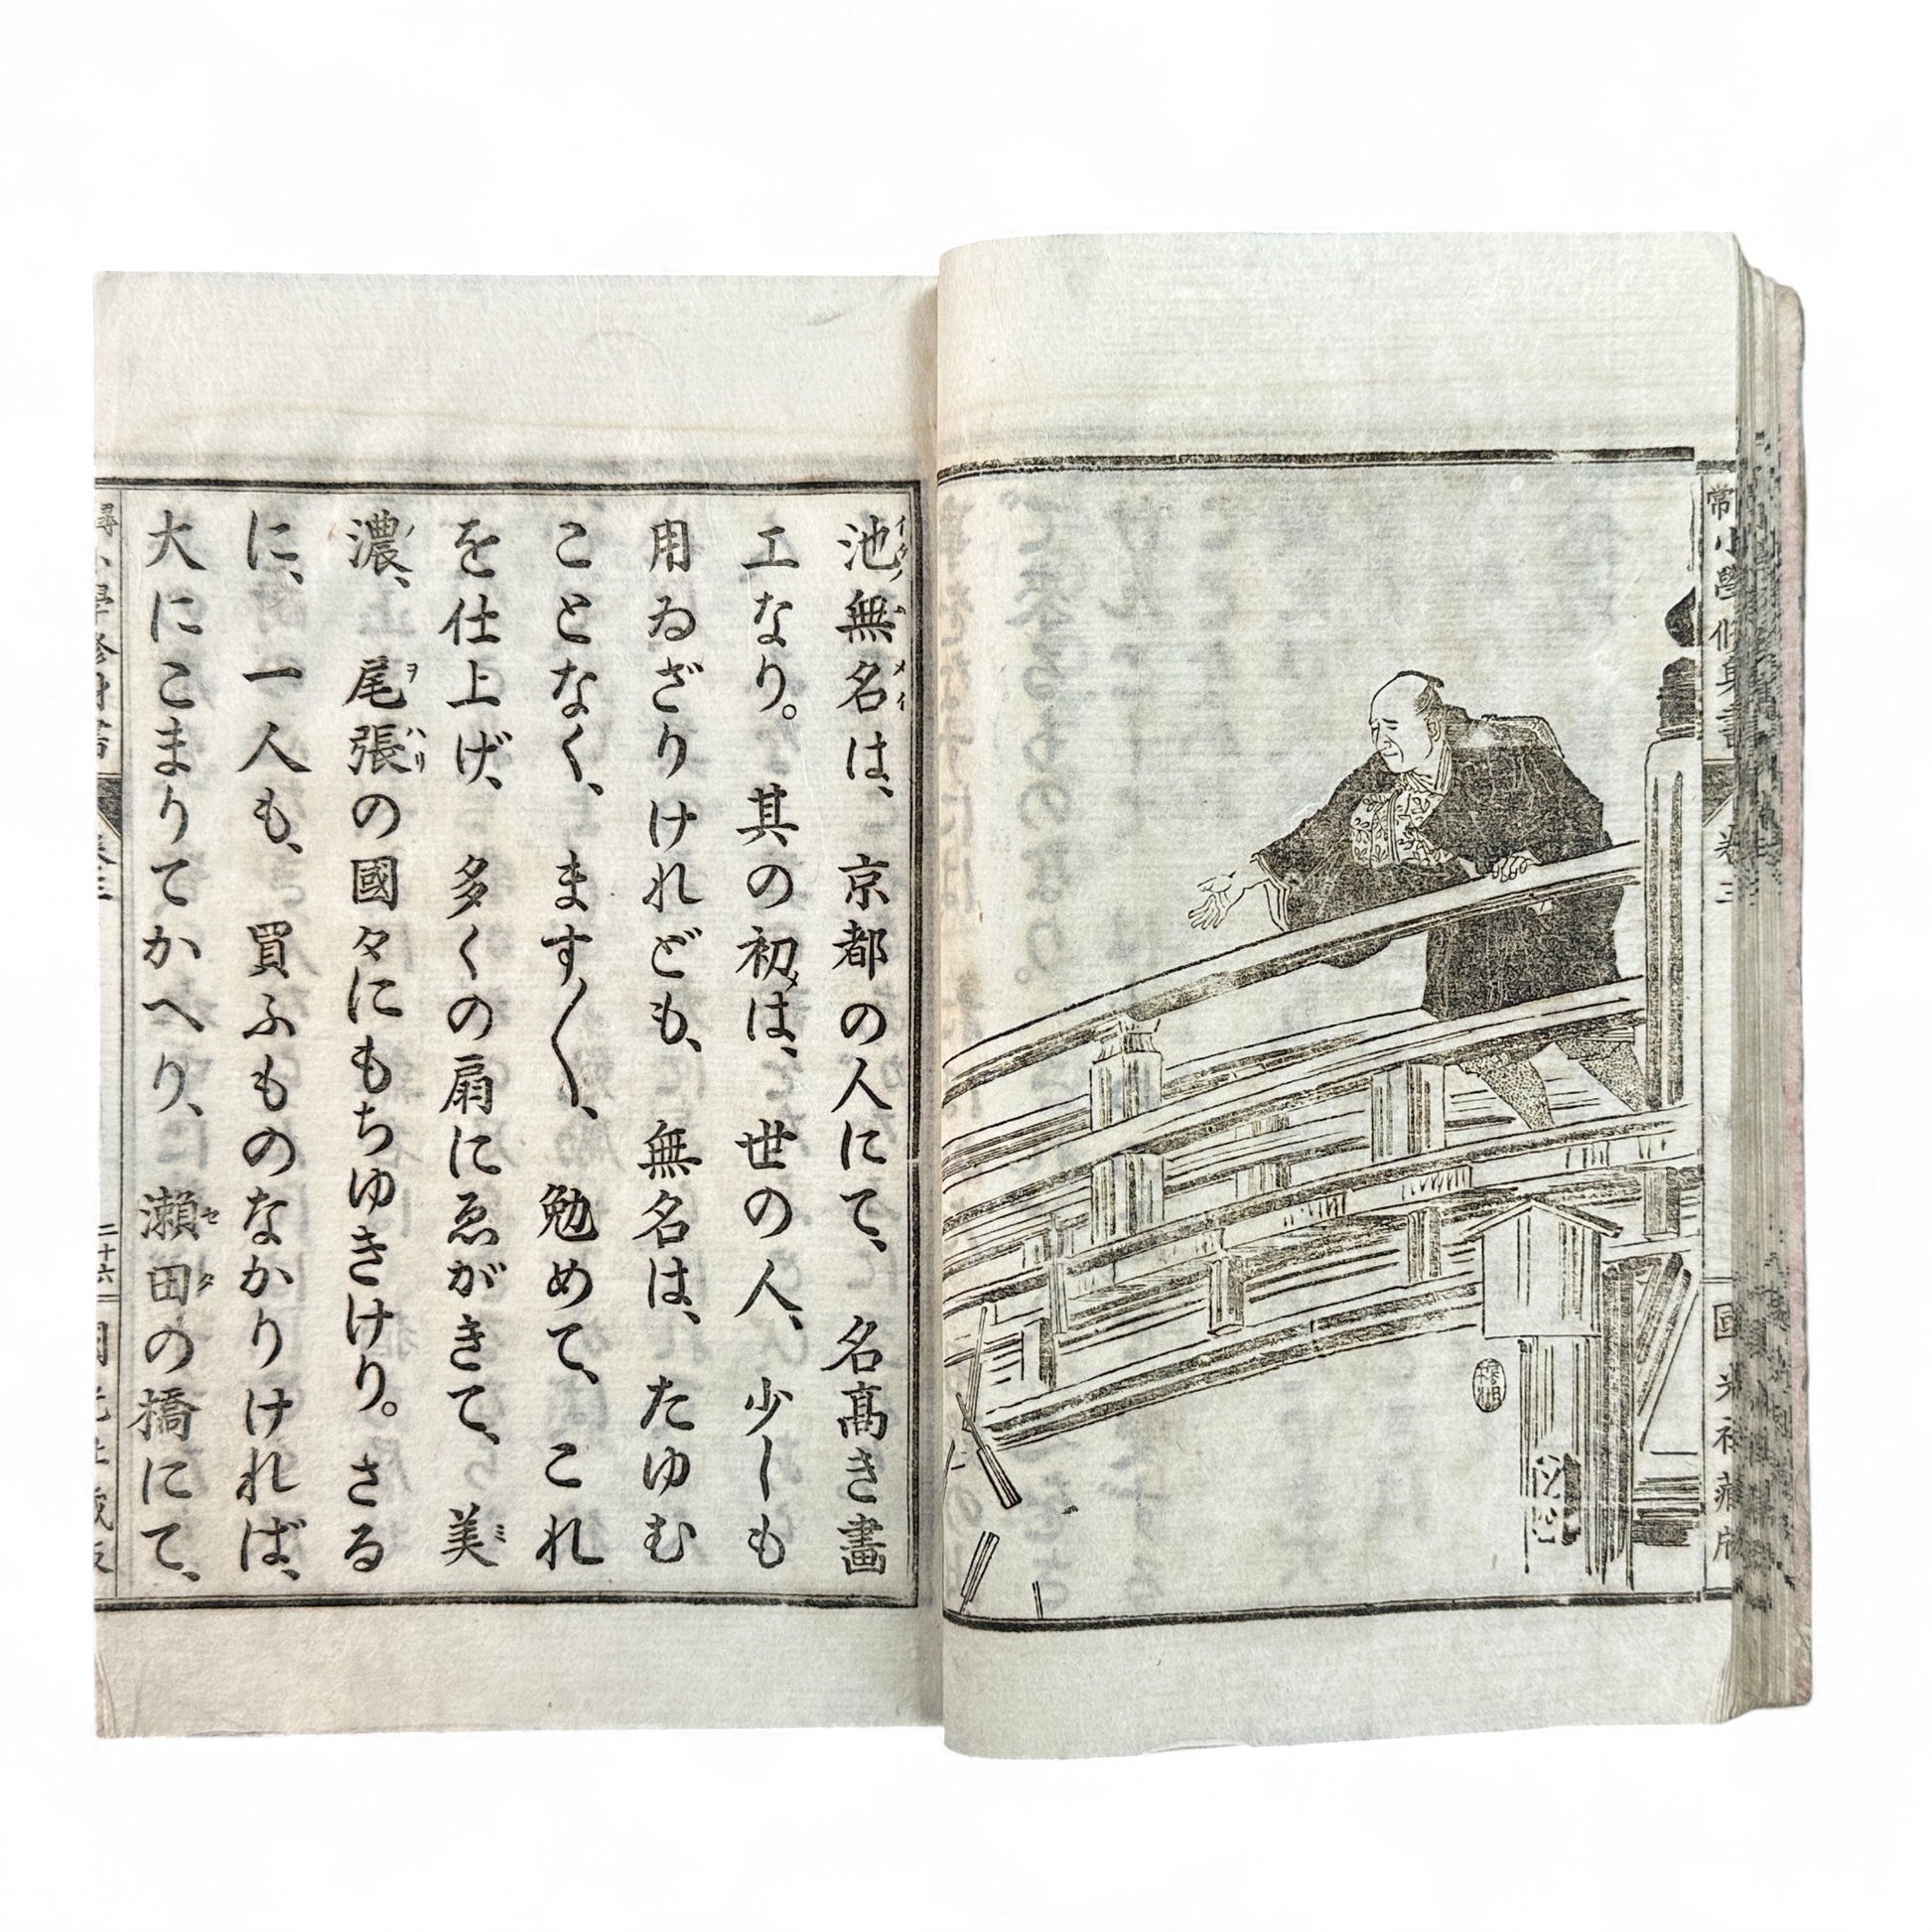 常小學修身書
卷三
國光社藏版
池無名は、京都の人にて、名高き畫
イケノムメイ
工なり。其の初は、世の人、少しも
用ゐざりけれども、無名は、たゆむ
ことなく、ます〳〵、勉めて、これ
を仕上げ、多くの扇にゑがきて、美
ミ
濃、尾張の國々にもちゆきけり。さる
ノ
ヲハリ
に、一人も、買ふものなかりければ、
大にこまりてかへり、瀬田の橋にて、
セタ
尋常小學修身書
卷三
二十六
國光社藏版